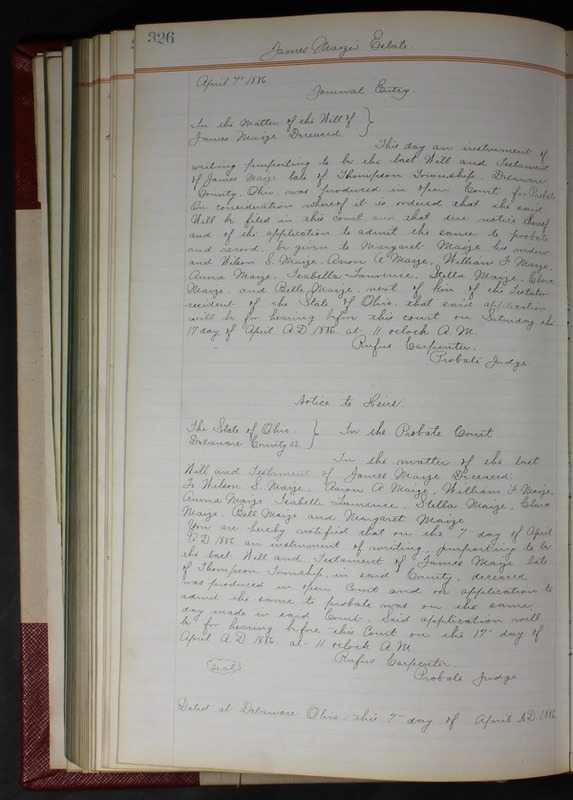 326
James Maize Estate.
April 7" 1886
Journal Entry.
In the Matter of the Will of
James Maize Deceased
This day an instrument of
writing purporting to be the last Will and Testament
of James Maize late of Thompson Township, Delaware
County Ohio was produced in open Court for Probate
On consideration whereof it is ordered that the said
Will be filed in this court and that due notice thereof
and of the application to admit the same to probate
and record, be given to Margaret Maize his widow
and Wilson S. Maize, Aaron A Maize, William F Maize,
Anna Maize, Isabella Lawrence, Stella Maize, Clara
Maize, and Belle Maize, next of kin of the Testator
resident of the State of Ohio, that said application
will be for hearing before this court on Saturday the
17 day of April A.D 1886 at 11 oclock A.M.
Rufus Carpenter.
Probate Judge
Notice to Heirs
The State of Ohio.
Delaware County ss.
In the Probate Court.
In the matter of the last
Will and Testament of James Maize Deceased.
To Wilson S. Maize, Aaron A Maize, William F Maize,
Anna Maize Isabella Stella Maize, Clara
Maize, Bell Maize and Margaret Maize
You are hereby notified that on the 7" day of April
A.D 1886 an instrument of writing, purporting to be
the last Will and Testament of James Maize late
of Thompson Township, in said County, deceased
was produced in open Court and an application to
admit the same to probate was on the same
day made in said Court. Said application will
be for hearing before this Court on the 17" day of
April A.D 1886 at 11 oclock A.M.
Rufus Carpenter.
Seal
Probate Judge
Dated at Delaware Ohio, this 7" day of April A.D. 1886